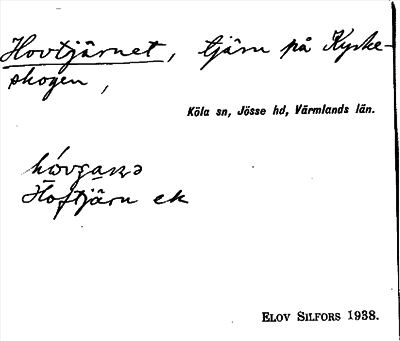 Hovtjärnet, tjärn på Kyrke-
skogen,
Köla sn, Jösse hd, Värmlands län.
Hoftjärn ek
ELOV SILFORS 1938.